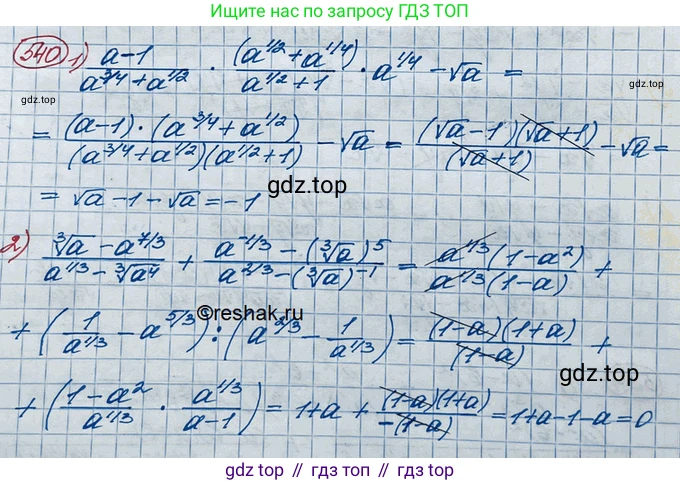 Ищите нас по запросу ГДЗ ТОП
540 1) (a-1)/(a^(3/4)+a^(1/2)) · (a^(1/2)+a^(1/4))/(a^(1/2)+1) · a^(1/4) - √a =
gdz.top gdz.top
= ((a-1)·(a^(3/4)+a^(1/2)))/((a^(3/4)+a^(1/2))(a^(1/2)+1)) - √a = ((√a-1)(√a+1))/(√a+1) - √a =
gdz.top
= √a-1-√a=-1
2) (∛a-a^(7/3))/(a^(1/3)-∛a⁴) + (a^(-1/3)-(∛a)^5)/(a^(2/3)-(∛a)^(-1)) = (a^(1/3)(1-a²))/(a^(1/3)(1-a)) +
©reshak.ru
+ (1/a^(1/3) - a^(5/3)) : (a^(2/3) - 1/a^(1/3)) = ((1-a)(1+a))/(1-a) +
gdz.top
+ ((1-a²)/a^(1/3) · a^(1/3)/(a-1)) = 1+a + ((1-a)(1+a))/(-(1-a)) = 1+a-1-a=0
gdz.top // гдз.топ // гдз.top